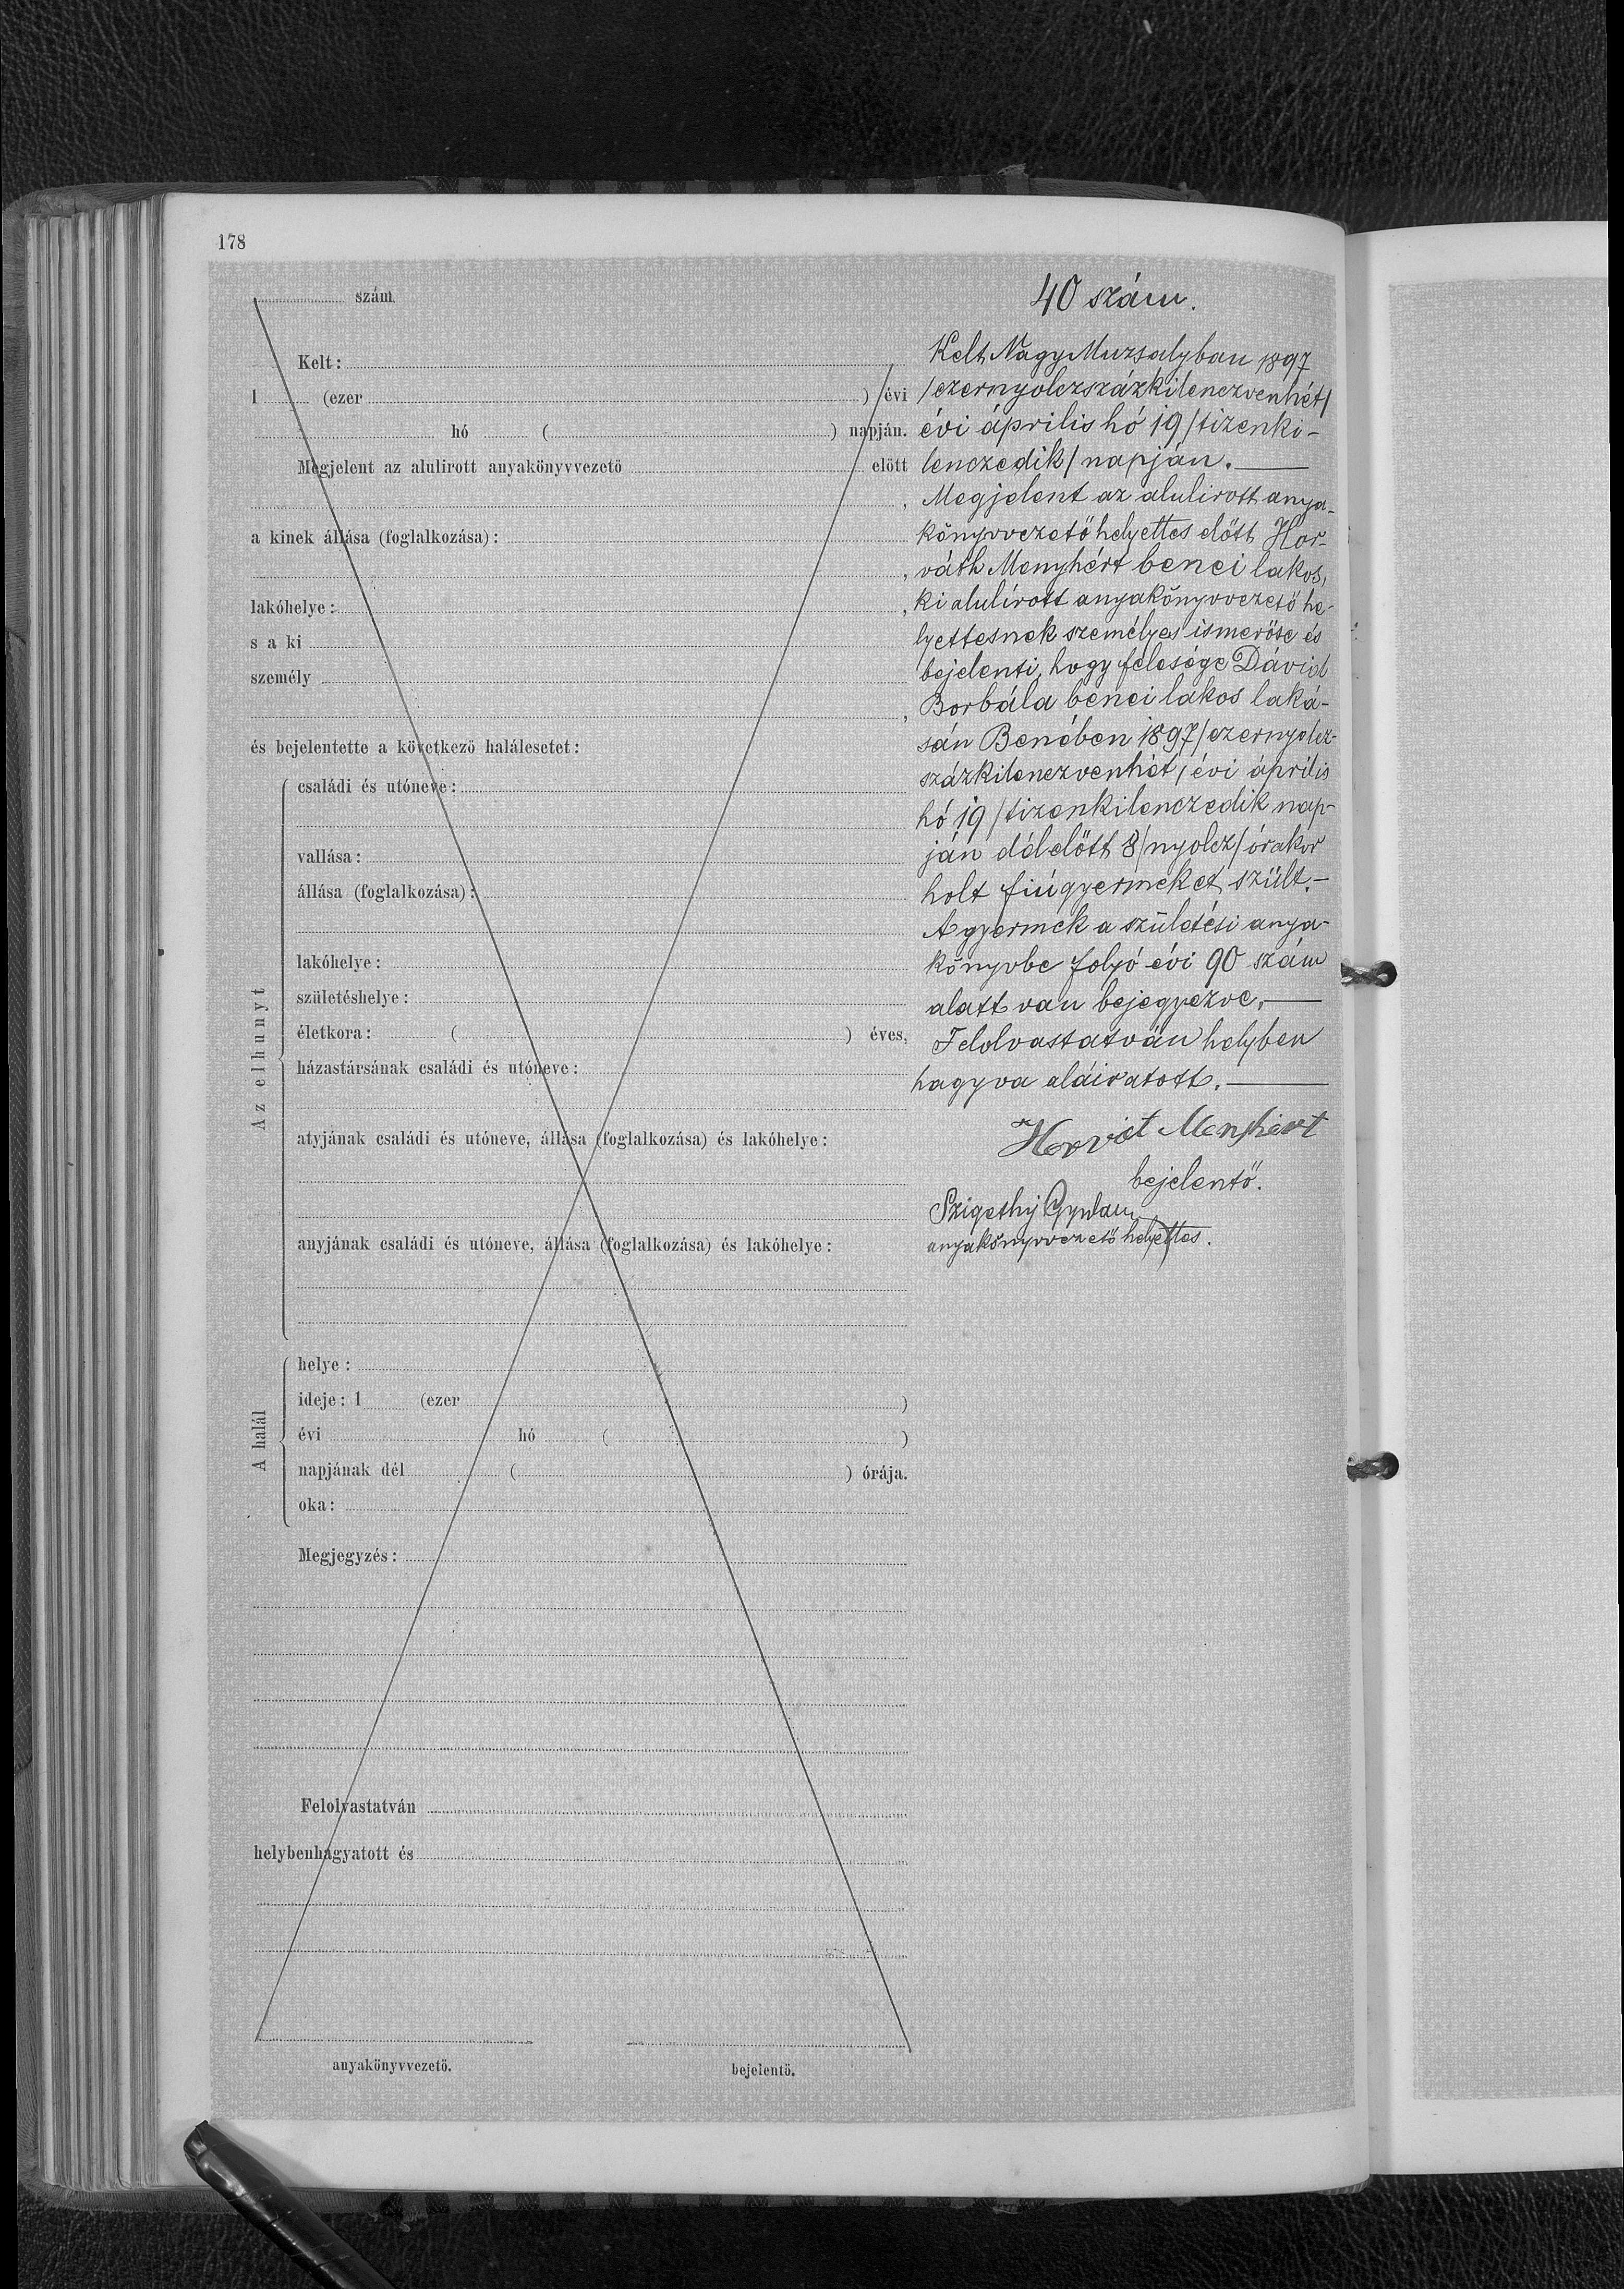 178
szám.
Kelt:
1 (ezer ) évi
hó ( ) napján.
Megjelent az alulirott anyakönyvvezető előtt
,
a kinek állása (foglalkozása):
,
lakóhelye: ,
s a ki
személy
,
és bejelentette a következő halálesetet:
Az elhunyt
családi és utóneve:
vallása:
állása (foglalkozása):
lakóhelye:
születéshelye:
életkora: ( ) éves,
házastársának családi és utóneve:
atyjának családi és utóneve, állása (foglalkozása) és lakóhelye:
anyjának családi és utóneve, állása (foglalkozása) és lakóhelye:
A halál
helye:
ideje: 1 (ezer )
évi hó ( )
napjának dél ( ) órája.
oka:
Megjegyzés:
Felolvastatván
helybenhagyatott és
anyakönyvvezető.
bejelentő.
40 szám.
Kelt Nagy Muzsalyban 1897
/ezernyolczszázkilenczvenhét/
évi április hó 19 /tizenki-
lenczedik/ napján.
Megjelent az alulirott anya-
könyvvezető helyettes előtt Hor-
váth Menyhért benei lakos,
ki alulírott anyakönyvvezető he-
lyettesnek személyes ismerőse és
bejelenti, hogy felesége Dávid
Borbála benei lakos laká-
sán Benében 1897 /ezernyolcz-
százkilenczvenhét/ évi április
hó 19 /tizenkilenczedik nap-
ján délelőtt 8 /nyolcz/ órakor
holt fiúgyermeket szült.-
A gyermek a születési anya-
könyvbe folyó évi 90 szám
alatt van bejegyezve.
Felolvastatván helyben
hagyva aláiratott.
Horvát Menyhért
bejelentő.
Szigethy Gyula
anyakönyvvezető helyettes.